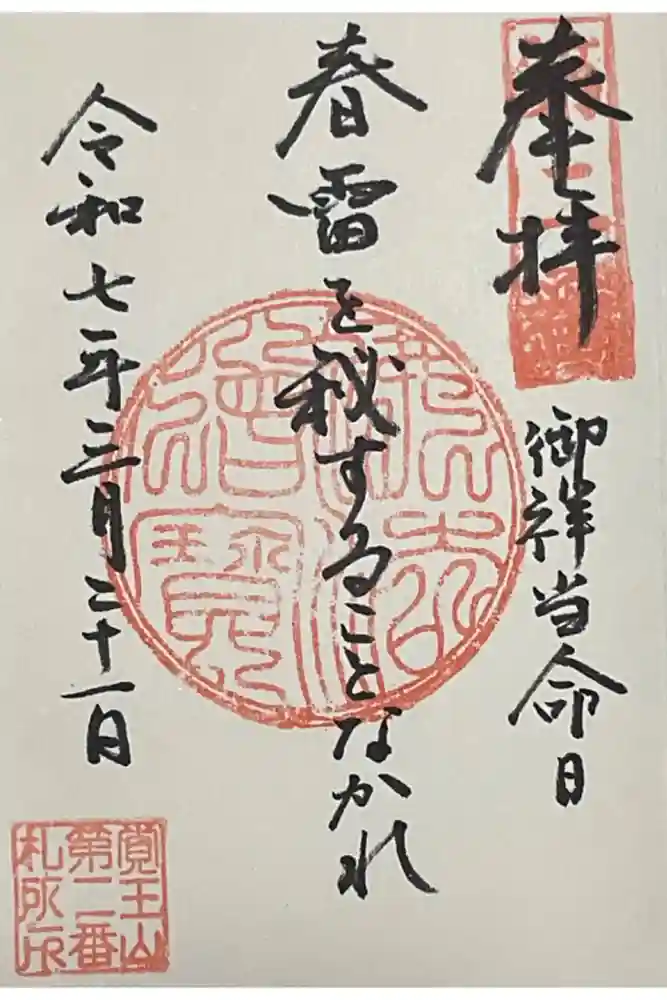 奉拝
御祥当命日
春雷を秘することなかれ
令和七年三月二十一日
覚王山
第二番
札所